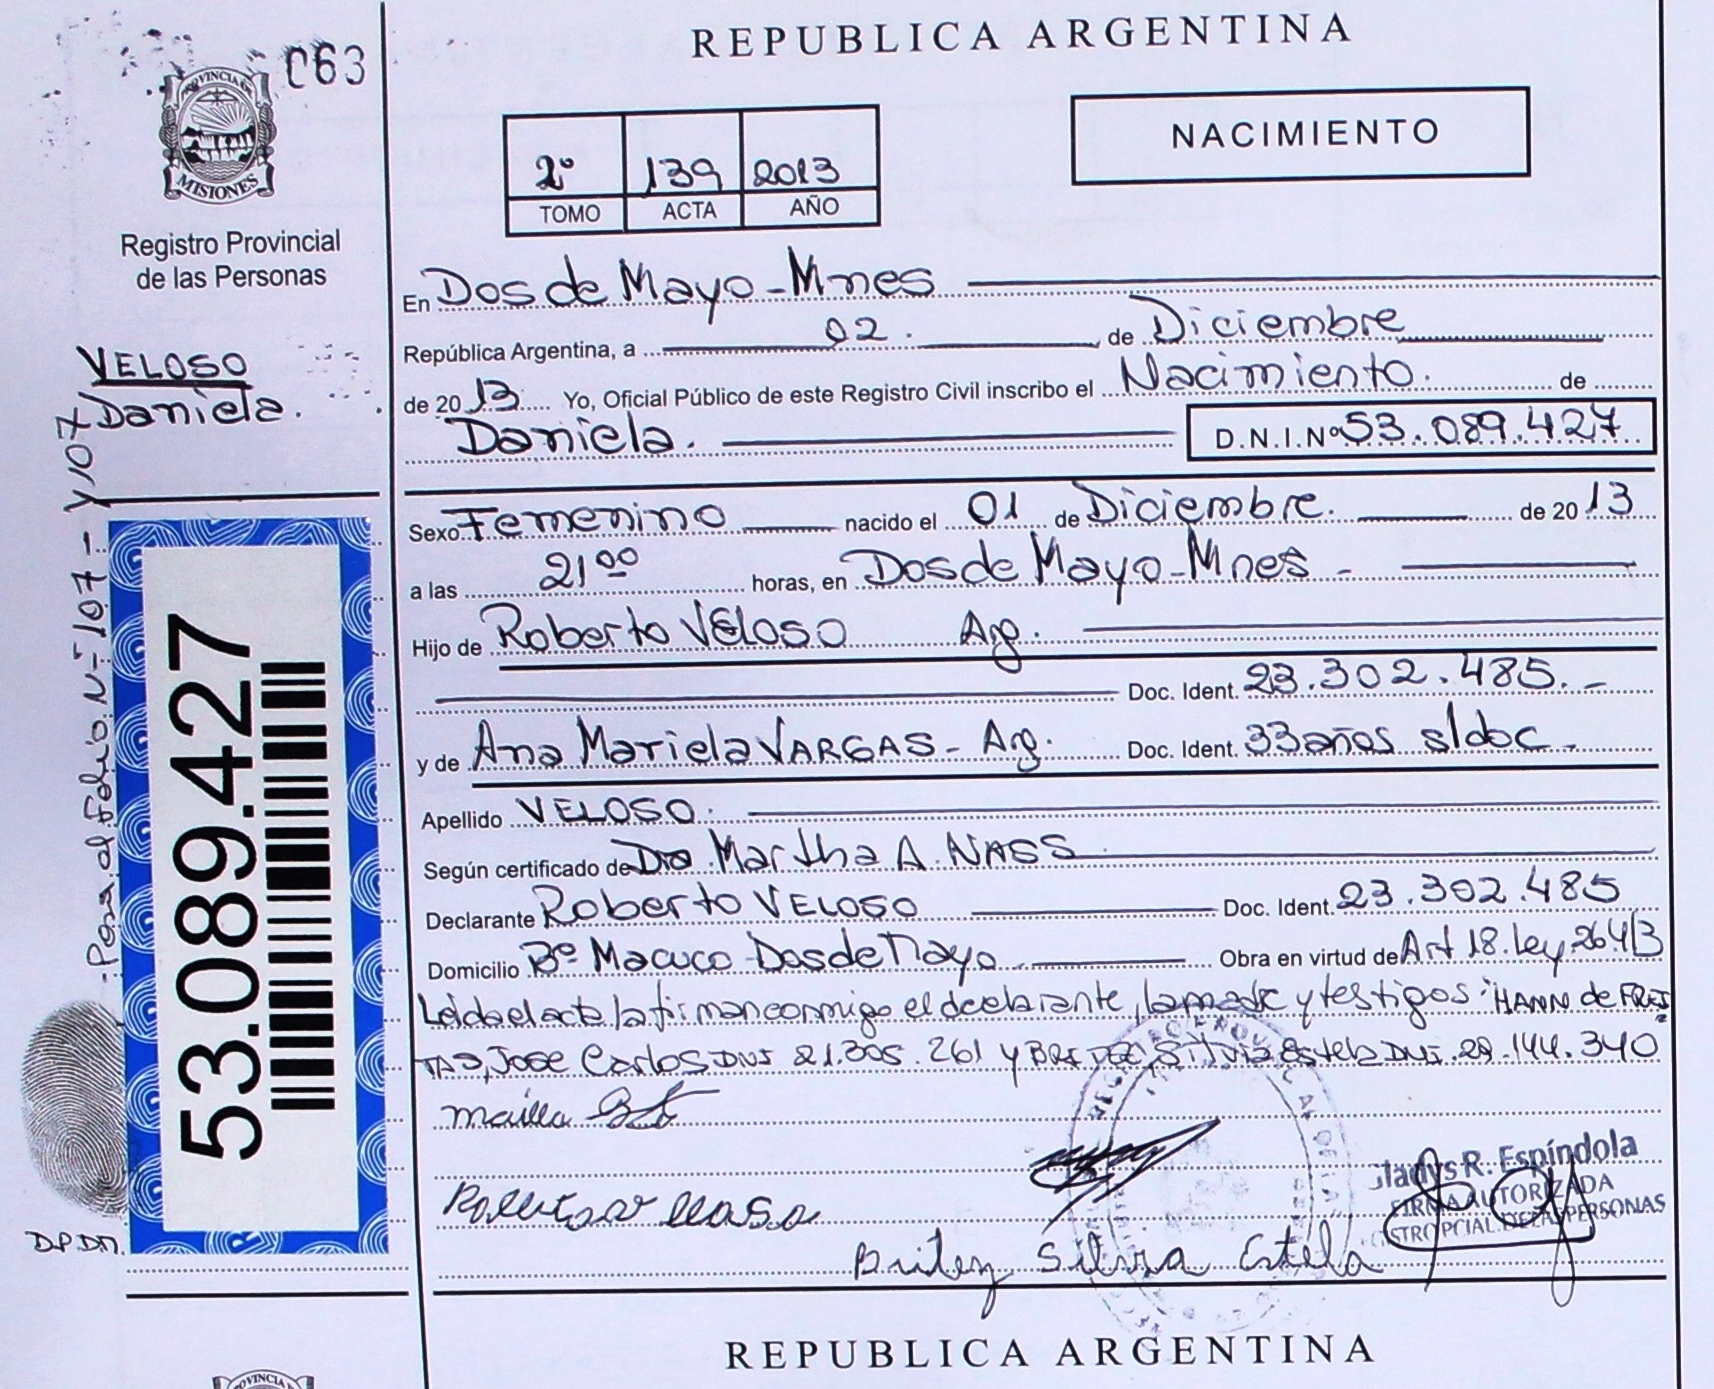 063
PROVINCIA DE
MISIONES
Registro Provincial
de las Personas
VELOSO
Daniela.
Pasa al Folio N° 107 - y 107
53.089.427
D.P.DM.
REPUBLICA ARGENTINA
NACIMIENTO
2° 139 2013
TOMO ACTA AÑO
En Dos de Mayo - Mnes
República Argentina, a 02. de Diciembre
de 20 13 Yo, Oficial Público de este Registro Civil inscribo el Nacimiento. de
Daniela. D.N.I. Nº 53.089.427
Sexo Femenino nacido el 01 de Diciembre. de 20 13
a las 21 00 horas, en Dos de Mayo - Mnes -
Hijo de Roberto VELOSO Arg.
Doc. Ident. 23.302.485. -
y de Ana Mariela VARGAS - Arg. Doc. Ident. 33 años s/doc -
Apellido VELOSO.
Según certificado de Dra. Martha A. NASS
Declarante Roberto VELOSO Doc. Ident. 23.302.485
Domicilio Bº Macuco - Dos de Mayo Obra en virtud de Art 18. Ley. 26413
Leida el acta la firman conmigo el declarante, la madre y testigos: HANN de FREI
TAS, Jose Carlos DNI 21.305.261 y BRITEZ, Silvia Estela DNI. 29.144.340
Britez Silvia Estela
Gladys R. Espíndola
FIRMA AUTORIZADA
REGISTRO PCIAL. DE LAS PERSONAS
REPUBLICA ARGENTINA
PROVINCIA